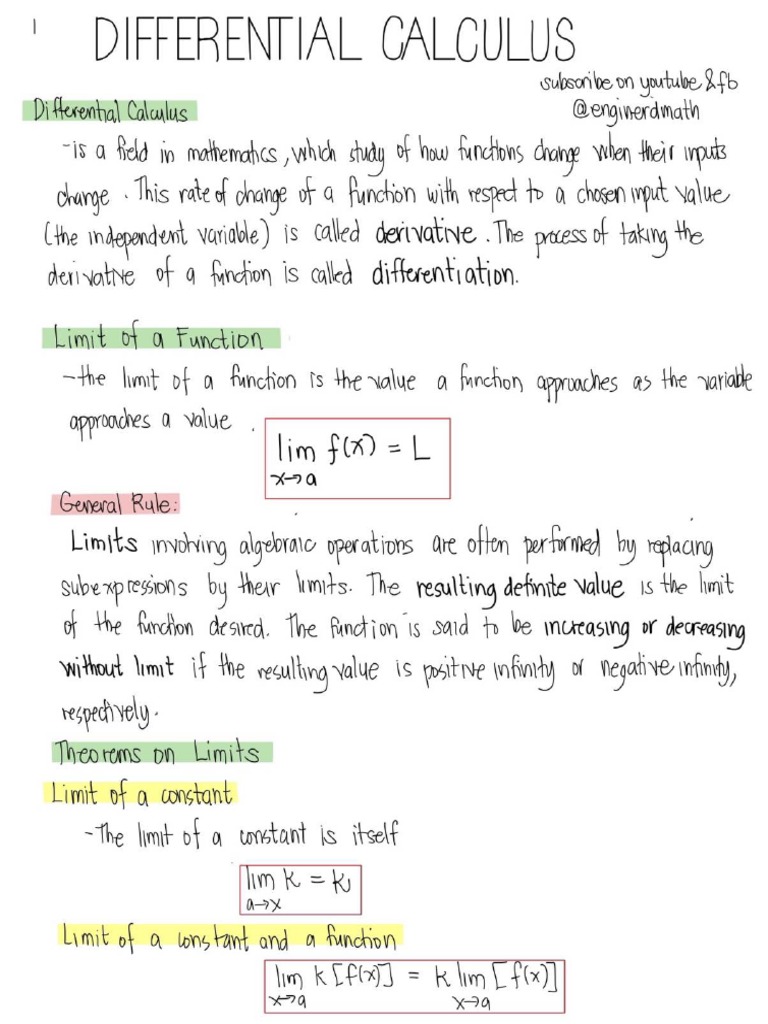 1
DIFFERENTIAL CALCULUS
subscribe on youtube & fb
@enginerdmath
Differential Calculus
-is a field in mathematics, which study of how functions change when their inputs
change. This rate of change of a function with respect to a chosen input value
(the independent variable) is called derivative. The process of taking the
derivative of a function is called differentiation.
Limit of a Function
-the limit of a function is the value a function approaches as the variable
approaches a value.
lim f(x) = L
x→a
General Rule:
Limits involving algebraic operations are often performed by replacing
subexpressions by their limits. The resulting definite value is the limit
of the function desired. The function is said to be increasing or decreasing
without limit if the resulting value is positive infinity or negative infinity,
respectively.
Theorems on Limits
Limit of a constant
-The limit of a constant is itself
lim k = k
a→x
Limit of a constant and a function
lim k[f(x)] = k lim [f(x)]
x→a x→a